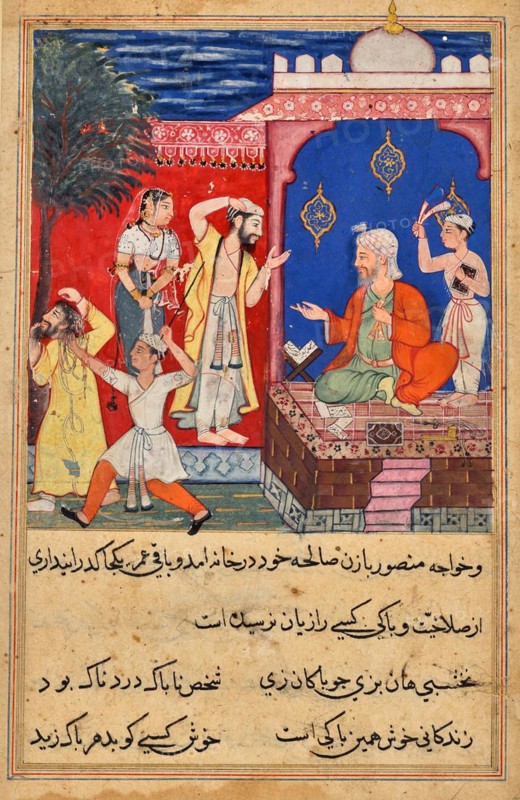 وخواجه منصور بازن صالحه خود در خانه امد و باقي عمر یکجا کدرانیداري
ازصلاحیّت و باکي کسے را زیان نرسیده است
نخشبي هان بزي جو باکان زي شخص ناباک دردناک بود
زندکاني خوش همین باکي است خوش کسے کو بدهر باک زید